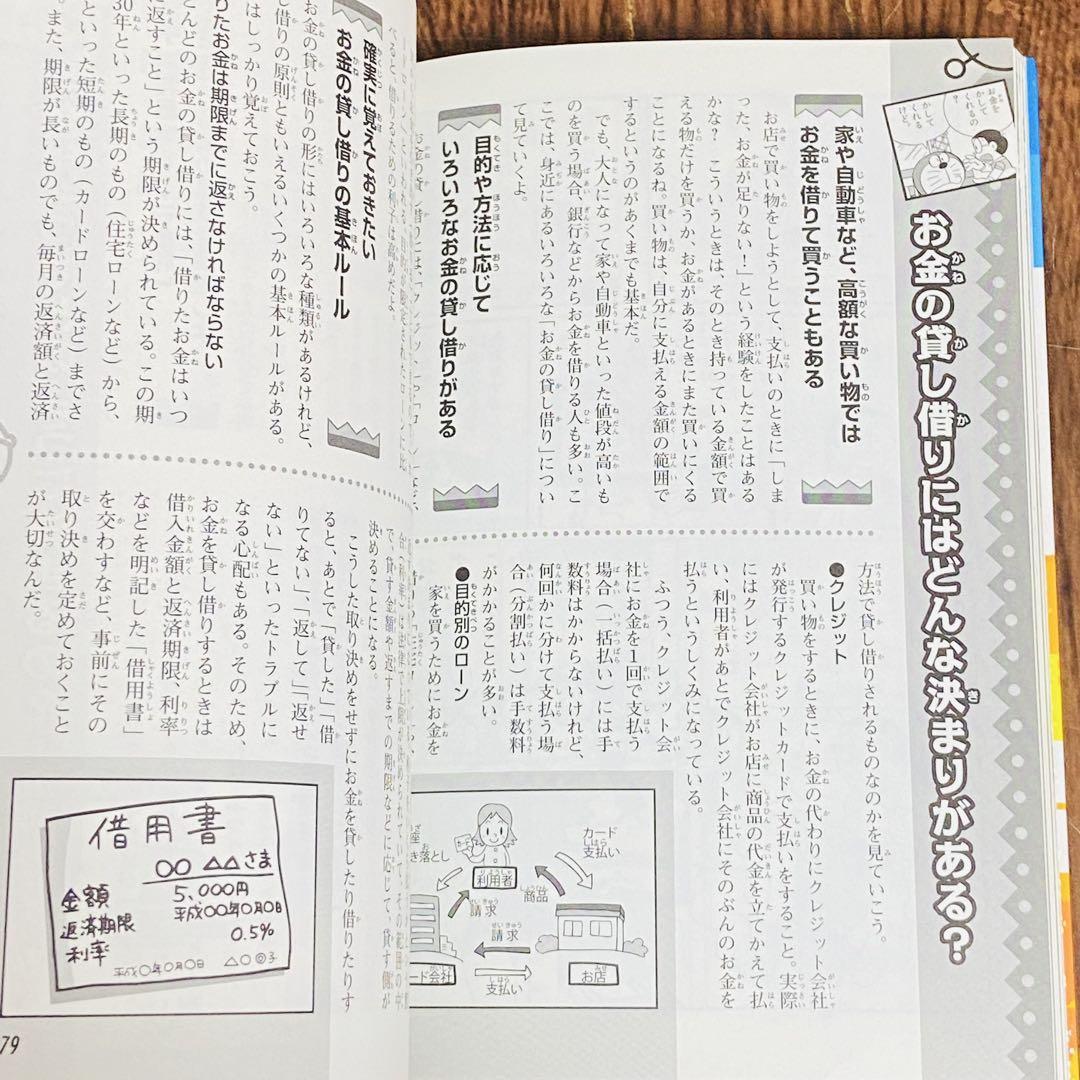 お金を
かして
くれるの
?
かして
くれる
けど。
お金の貸し借りにはどんな決まりがある?
家や自動車など、高額な買い物では
お金を借りて買うこともある
お店で買い物をしようとして、支払いのときに「しま
った、お金が足りない!」という経験をしたことはある
かな? こういうときは、そのとき持っている金額で買
える物だけを買うか、お金があるときにまた買いにくる
ことになるね。買い物は、自分に支払える金額の範囲で
するというのがあくまでも基本だ。
でも、大人になって家や自動車といった値段が高いも
のを買う場合、銀行などからお金を借りる人も多い。こ
こでは、身近にあるいろいろな「お金の貸し借り」につい
て見ていくよ。
目的や方法に応じて
いろいろなお金の貸し借りがある
方法で貸し借りされるものなのかを見ていこう。
●クレジット
買い物をするときに、お金の代わりにクレジット会社
が発行するクレジットカードで支払いをすること。実際
にはクレジット会社がお店に商品の代金を立てかえて払
い、利用者があとでクレジット会社にそのぶんのお金を
払うというしくみになっている。
ふつう、クレジット会
社にお金を1回で支払う
場合(一括払い)には手
数料はかからないけれど、
何回かに分けて支払う場
合(分割払い)は手数料
がかかることが多い。
●目的別のローン
家を買うためにお金を
カード
支払い
利用者
き落とし
請求
商品
請求
ード会社
支払い
お店
確実に覚えておきたい
お金の貸し借りの基本ルール
お金の貸し借りの形にはいろいろな種類があるけれど、
し借りの原則ともいえるいくつかの基本ルールがある。
はしっかり覚えておこう。
りたお金は期限までに返さなければならない
とんどのお金の貸し借りには、「借りたお金はいつ
に返すこと」という期限が決められている。この期
30年といった長期のもの(住宅ローンなど)から、
といった短期のもの(カードローンなど)までさ
。また、期限が長いものでも、毎月の返済額と返済
で、貸す金額や返すまでの期限などに応じて、貸す側が
決めることになる。
こうした取り決めをせずにお金を貸したり借りたりす
ると、あとで「貸した」「借
りてない」、「返して」「返せ
ない」といったトラブルに
なる心配もある。そのため、
お金を貸し借りするときは
借入金額と返済期限、利率
などを明記した「借用書」
を交わすなど、事前にその
取り決めを定めておくこと
が大切なんだ。
借用書
○○ △△さま
金額 5,000円
返済期限 平成○○年○月○日
利率 0.5%
平成○年○月○日 △○◎子
79